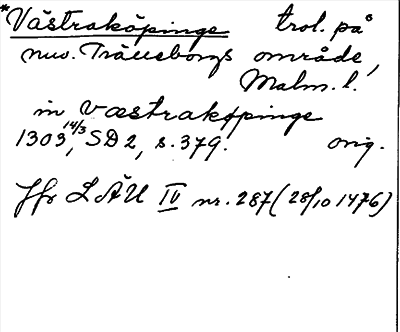 *Västraköpinge trol. på
nuv. Trälleborgs område,
Malm. l.
in væstrakøpinge
1303 14/3, SD 2, s. 379. orig.
Jfr LÄU IV nr. 287 (28/10 1476)